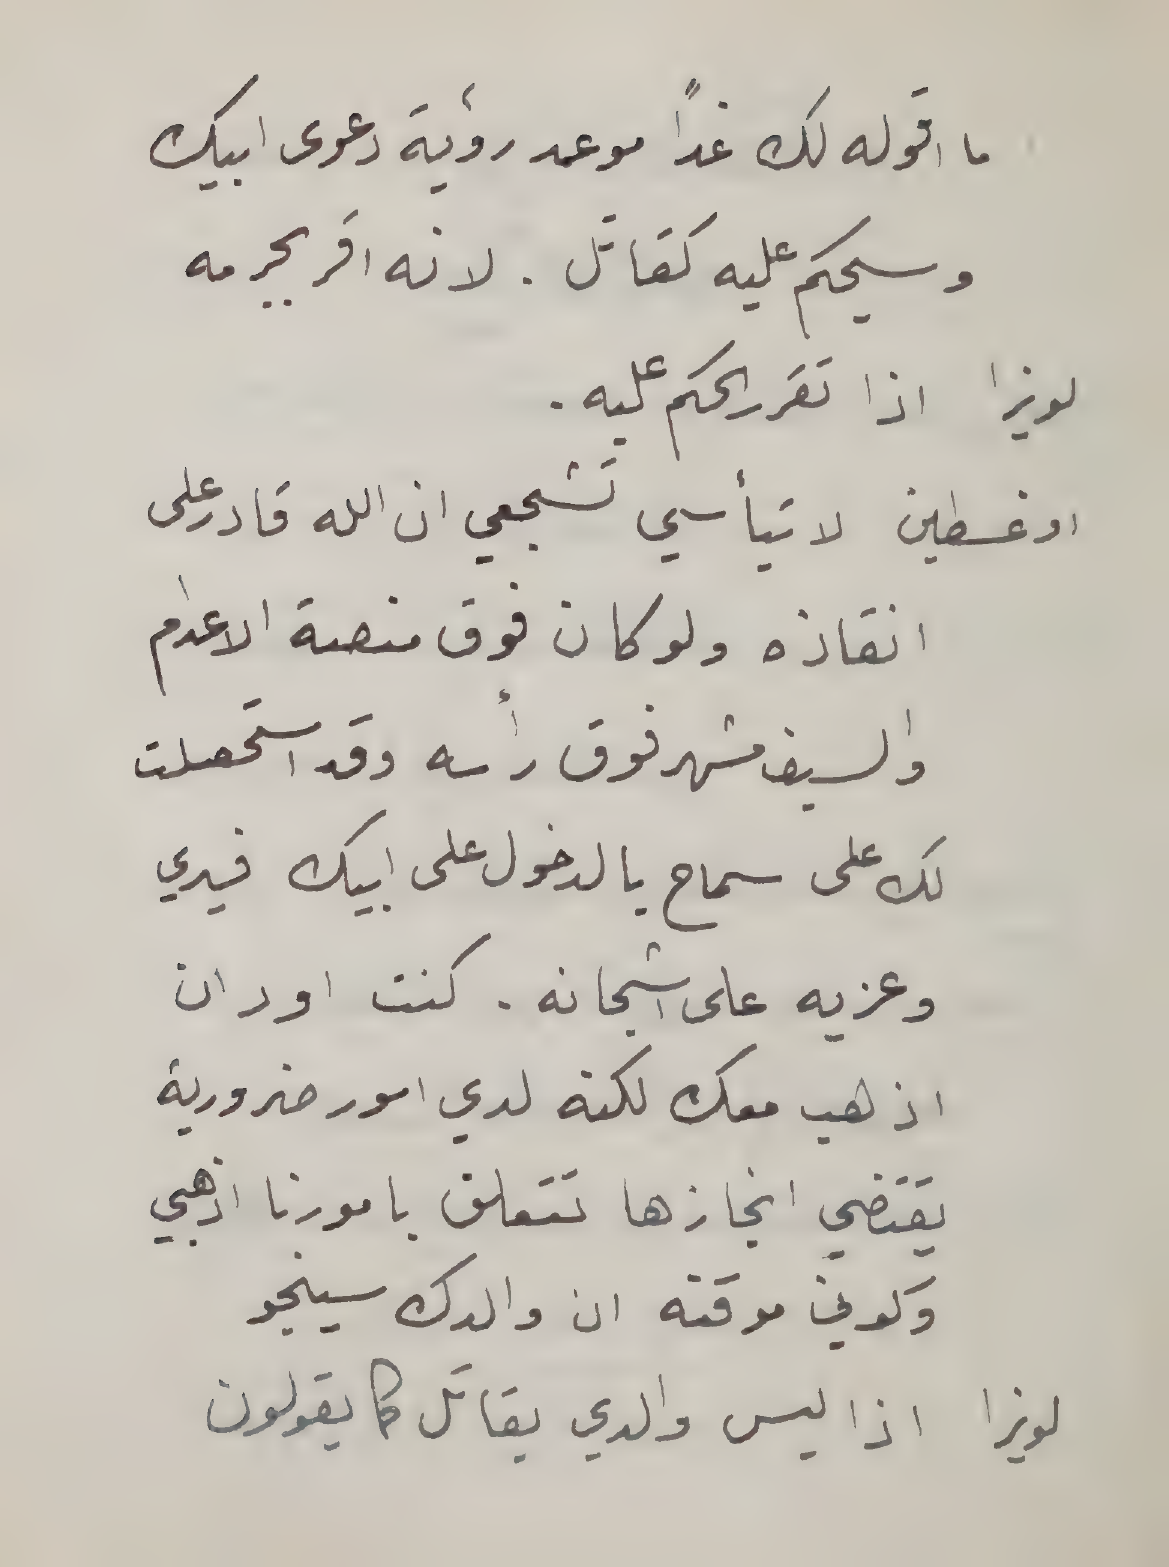 ما اقوله لك غداً موعد رؤية دعوى ابيك
وسيحكم عليه كقاتل . لانه اقر بجرمه
لويزا اذا تقرر الحكم عليه .
اوغسطين لا تيأسي تشجعي ان الله قادر على
انقاذه ولو كان فوق منصة الاعدام
والسيف مشهر فوق رأسه وقد استحصلت
لك على سماح بالدخول على ابيك فيدي
وعزيه على اشجانه . كنت اود ان
اذهب معك لكنه لدي امور ضرورية
يقتضي انجازها تتعلق بامورنا اذهبي
وكوني موقنه ان والدك سينجو
لويزا اذا ليس والدي بقاتل كما يقولون